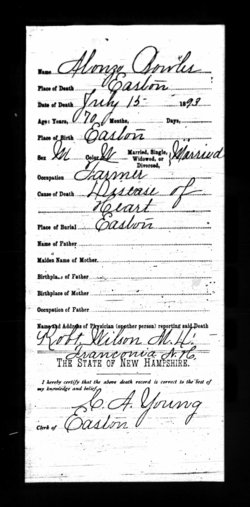 Name Alonzo Bowles
Place of Death Easton
Date of Death July 15 1893
Age: Years, 70 Months, Days,
Place of Birth Easton
Sex M Color W Married, Single, Widowed, or Divorced, Married
Occupation Farmer
Cause of Death Disease of
Heart
Place of Burial Easton
Name of Father
Maiden Name of Mother.
Birthplace of Father
Birthplace of Mother
Occupation of Father
Name and Address of Physician (or other person) reporting said Death
Robt Wilson M.D.
Franconia N.H.
THE STATE OF NEW HAMPSHIRE.
I hereby certify that the above death record is correct to the best of
my knowledge and belief.
C. A. Young
Clerk of Easton